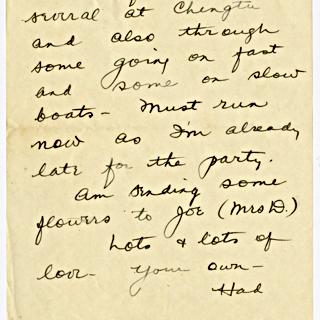 several at Chengtu
and also through
some going on fast
and some on slow
boats - Must run
now as I'm already
late for the party.
Am sending some
flowers to Joe (Mrs D.)
Lots & lots of
love - Your own -
Had